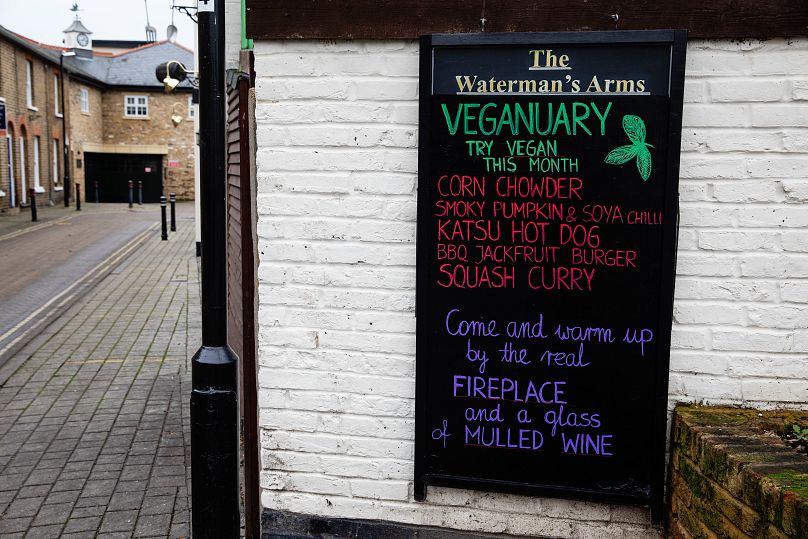 The
Waterman's Arms
VEGANUARY
TRY VEGAN
THIS MONTH
CORN CHOWDER
SMOKY PUMPKIN & SOYA CHILLI
KATSU HOT DOG
BBQ JACKFRUIT BURGER
SQUASH CURRY
Come and warm up
by the real
FIREPLACE
and a glass
of MULLED WINE